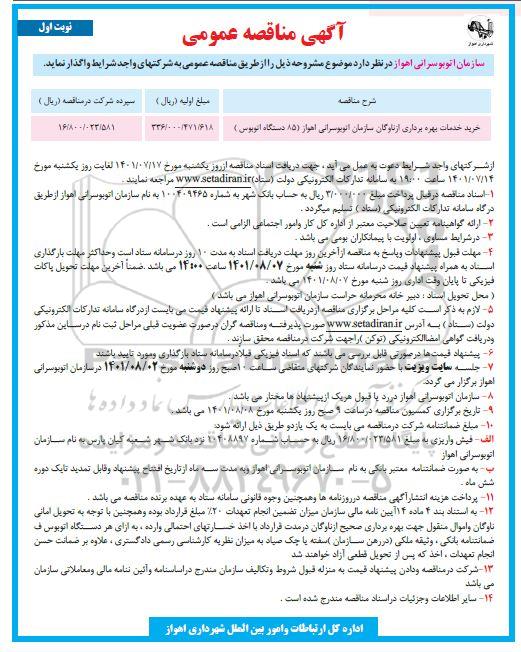 نوبت اول
آگهی مناقصه عمومی
شهرداری اهواز
سازمان اتوبوسرانی اهواز در نظر دارد موضوع مشروحه ذیل را از طریق مناقصه عمومی به شرکتهای واجد شرایط واگذار نماید.
شرح مناقصه مبلغ اولیه (ریال) سپرده شرکت در مناقصه (ریال)
خرید خدمات بهره برداری از ناوگان سازمان اتوبوسرانی اهواز (۸۵ دستگاه اتوبوس) ۳۳۶/۰۰۰/۴۷۱/۶۱۸ ۱۶/۸۰۰/۰۲۳/۵۸۱
از شرکتهای واجد شرایط دعوت به عمل می آید ، جهت دریافت اسناد مناقصه از روز یکشنبه مورخ ۱۴۰۱/۰۷/۱۷ لغایت روز یکشنبه مورخ
۱۴۰۱/۰۷/۱۴ ساعت ۱۹:۰۰ به سامانه تدارکات الکترونیکی دولت (ستاد)www.setadiran.ir مراجعه نمایند .
۱-اسناد مناقصه درقبال پرداخت مبلغ ۳/۰۰۰/۰۰۰ ریال به حساب بانک شهر به شماره ۱۰۰۴۰۹۴۶۵ به نام سازمان اتوبوسرانی اهواز ازطریق
درگاه سامانه تدارکات الکترونیکی (ستاد ) تسلیم میگردد .
۲- ارائه گواهینامه تعیین صلاحیت معتبر از اداره کل کار وامور اجتماعی الزامی است .
۳- درشرایط مساوی ، اولویت با پیمانکاران بومی می باشد .
۴- مهلت قبول پیشنهادات وپاسخ به مناقصه ازآخرین روز مهلت دریافت اسناد به مدت ۱۰ روز درسامانه ستاد است وحداکثر مهلت بارگذاری
اسناد به همراه پیشنهاد قیمت درسامانه ستاد روز شنبه مورخ ۱۴۰۱/۰۸/۰۷ ساعت ۱۴:۰۰ می باشد .ضمناً آخرین مهلت تحویل پاکات
فیزیکی تا پایان وقت اداری روز شنبه مورخ ۱۴۰۱/۰۸/۰۷ می باشد .
( محل تحویل اسناد : دبیر خانه محرمانه حراست سازمان اتوبوسرانی اهواز می باشد )
۵- لازم به ذکر است کلیه مراحل برگزاری مناقصه ازدریافت اسناد تا ارائه پیشنهاد قیمت می بایست ازدرگاه سامانه تدارکات الکترونیکی
دولت (ستاد ) به آدرس www.setadiran.ir صورت پذیرفته ومناقصه گران درصورت عضویت قبلی مراحل ثبت نام درسایت مذکور
ودریافت گواهی امضاالکترونیکی (توکن )راجهت شرکت درمناقصه محقق سازند .
۶- پیشنهاد قیمت‌ها درصورتی قابل بررسی می باشند که اسناد فیزیکی قبلاًدرسامانه ستاد بارگذاری ومورد تایید باشند
۷- جلسه سایت ویزیت با حضور نمایندگان شرکتهای متقاضی ساعت ۱۰صبح روز دوشنبه مورخ ۱۴۰۱/۰۸/۰۲ درسازمان اتوبوسرانی
اهواز برگزار می گردد.
۸- سازمان اتوبوسرانی اهواز دررد یا قبول هریک ازپیشنهادها مختار می باشد .
۹- تاریخ برگزاری کمسیون مناقصه درساعت ۹ صبح روز یکشنبه مورخ ۱۴۰۱/۰۸/۰۸ می باشد .
۱۰- مبلغ ضمانتنامه شرکت درمناقصه می بایست به یک یازدو طریق ذیل ارائه شود:
الف - فیش واریزی به مبلغ ۱۶/۸۰۰/۰۲۳/۵۸۱ ریال به حساب شماره ۱۰۰۴۰۸۸۹۷ نزد بانک شهر شعبه کیان پارس به نام سازمان
اتوبوسرانی اهواز
ب- به صورت ضمانتنامه معتبر بانکی به نام سازمان اتوبوسرانی اهواز وبه مدت سه ماه ازتاریخ افتتاح پیشنهاد وقابل تمدید تایک دوره
شش ماه .
۱۱- پرداخت هزینه انتشارآگهی مناقصه درروزنامه ها وهمچنین وجوه قانونی سامانه ستاد به عهده برنده مناقصه می باشد .
۱۲- به استناد بند ۴ ماده ۱۴آیین نامه مالی سازمان میزان تضمین انجام تعهدات ۲۰٪ مبلغ قرارداد بوده وهمچنین با توجه به تحویل امانی
ناوگان واموال منقول جهت بهره برداری صحیح ازناوگان درمدت قرارداد با اخذ خسارتهای احتمالی وارده ، به ازای هر دستگاه اتوبوس ف
ضمانتنامه بانکی ، وثیقه ملکی (دررهن سازمان )سفته یا چک صیاد به میزان نظریه کارشناسی رسمی دادگستری ، علاوه بر ضمانت حسن
انجام تعهدات ، اخذ که پس از تحویل قطعی آزاد خواهند شد
۱۳-شرکت درمناقصه ودادن پیشنهاد قیمت به منزله قبول شروط وتکالیف سازمان مندرج دراساسنامه وآئین نامه مالی ومعاملاتی سازمان
می باشد
۱۴- سایر اطلاعات وجزئیات دراسناد مناقصه مندرج شده است .
اداره کل ارتباطات وامور بین الملل شهرداری اهواز
۰۲۱-۸۸۳۴۹۶۷۰-۵